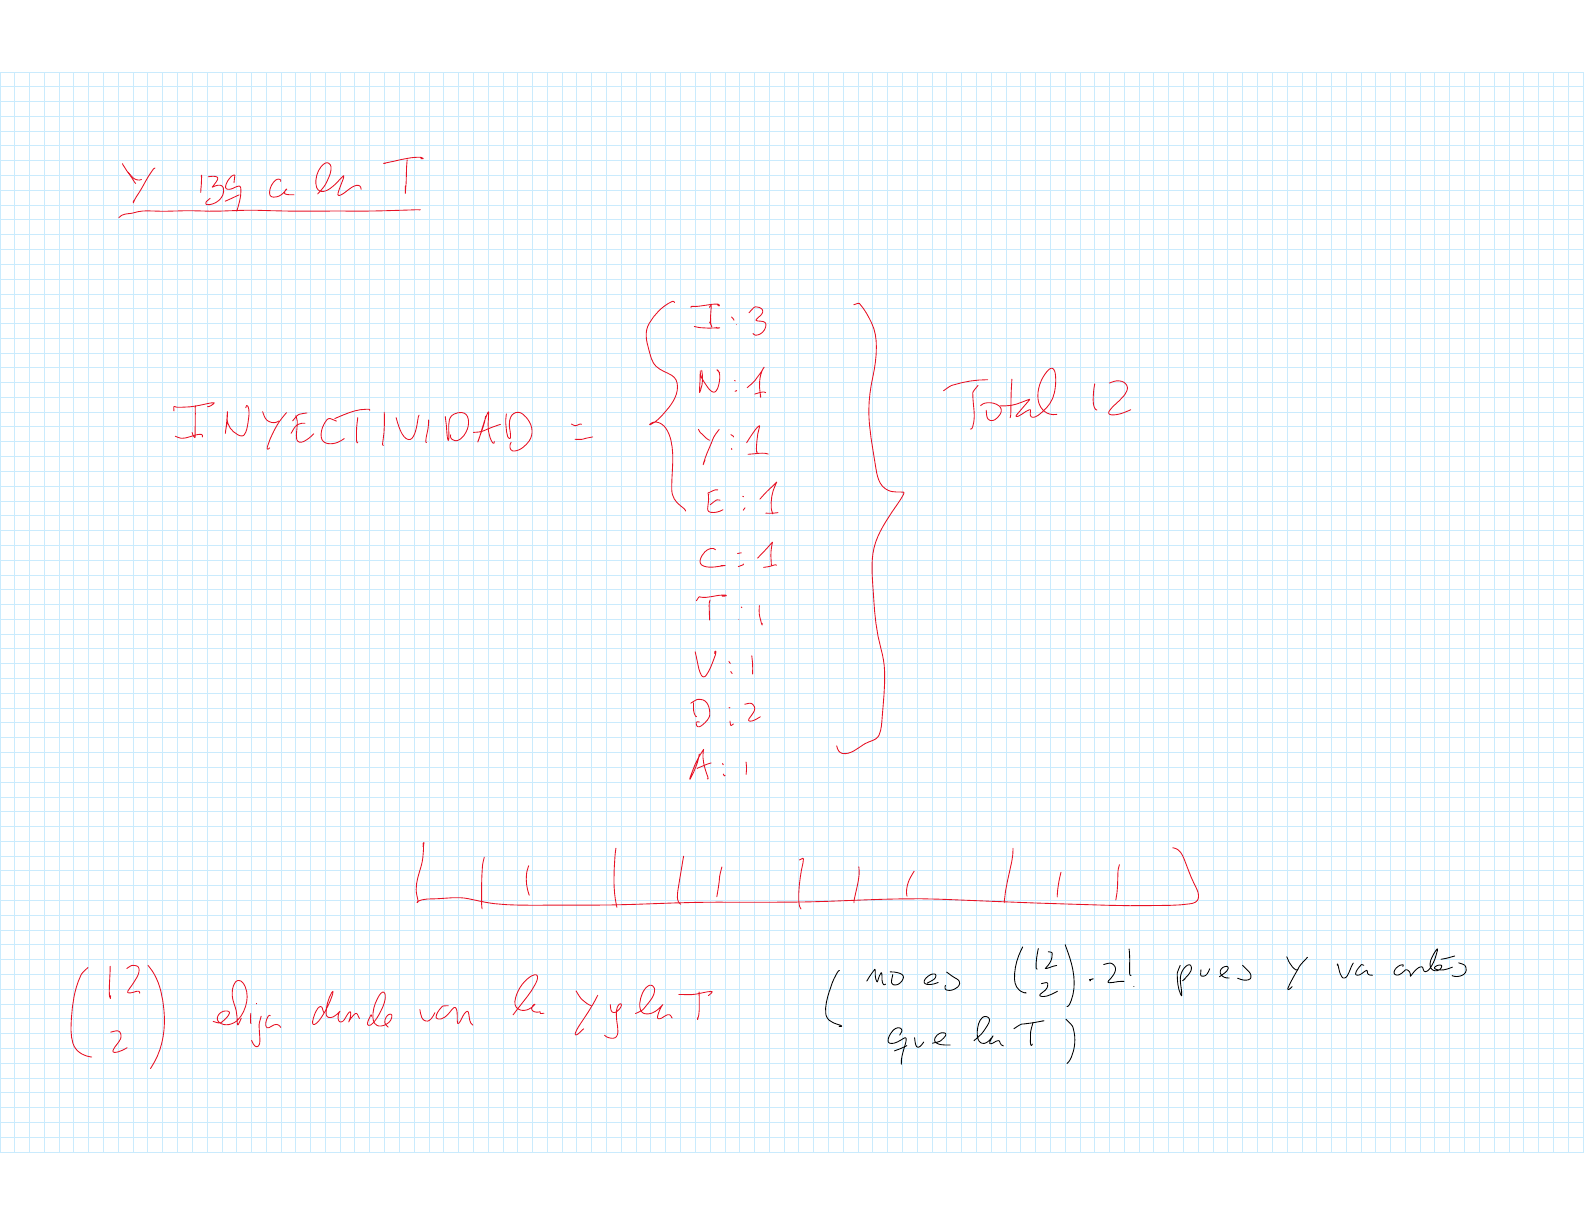 Y izq a la T
INYECTIVIDAD =
I: 3
N: 1
Y: 1
E: 1
C: 1
T: 1
V: 1
D: 2
A: 1
Total 12
(12 2) elija donde van la Y y la T
( no es (12 2) . 2! pues Y va antes
que la T )